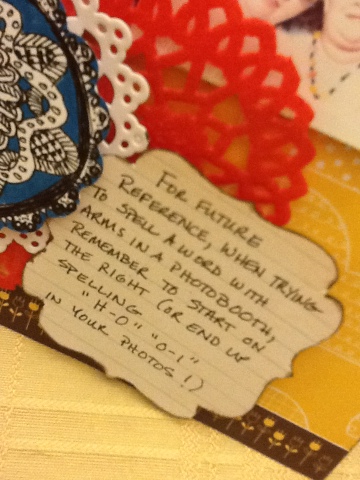 FOR FUTURE
REFERENCE, WHEN TRYING
TO SPELL A WORD WITH
ARMS IN A PHOTOBOOTH,
REMEMBER TO START ON
THE RIGHT (OR END UP
SPELLING
"H-O" "O-I"
IN YOUR PHOTOS!)